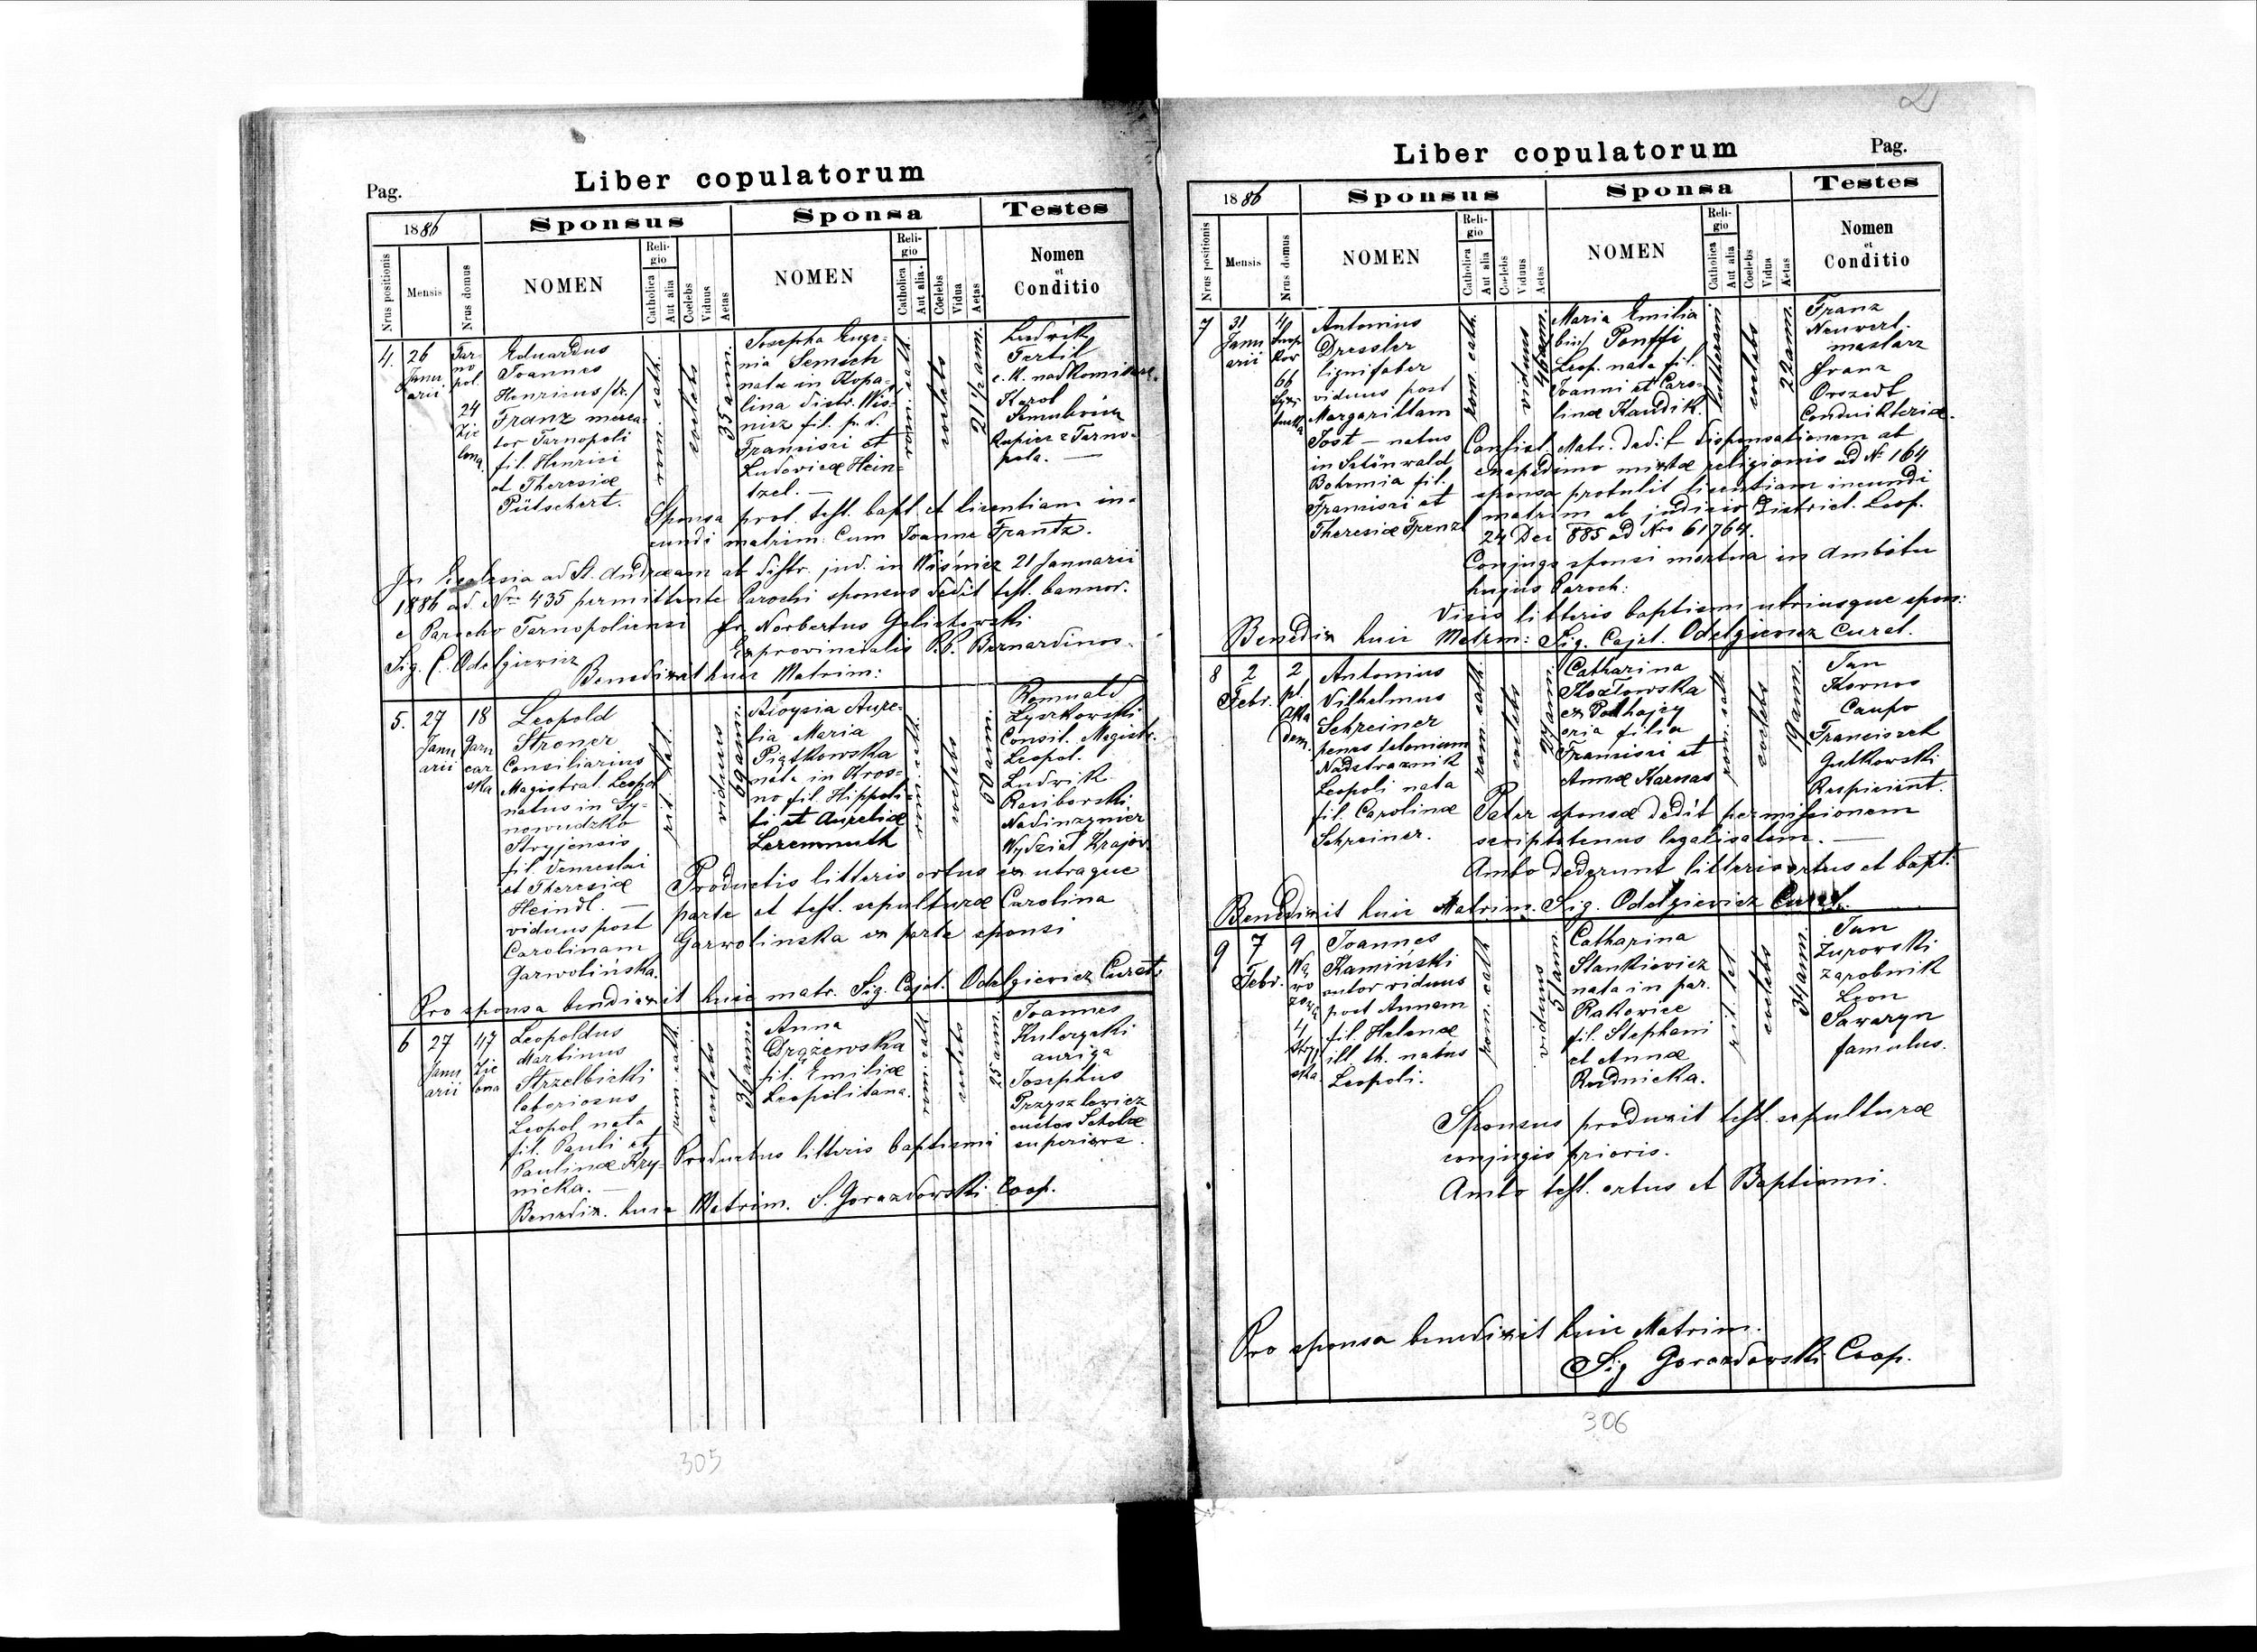 Liber copulatorum
Pag.
1886
Sponsus
Sponsa
Testes
Nrus positionis
Mensis
Nrus domus
NOMEN
Religio
Catholica
Aut alia
Coelebs
Viduus
Aetas
NOMEN
Religio
Catholica
Aut alia
Coelebs
Vidua
Aetas
Nomen
et
Conditio
4.
26
Janu
arii
Tar-
no
pol.
24
Zie
lona
Eduardus
Joannes
Henricus /tr./
Franz merca-
tor Tarnopoli
fil. Henrici
et Theresiæ
Pütschert.
coelebs
35 ann.
Josepha Euge-
nia Semsch
nata in Kopa-
lina distr. Wis-
nicz fil. p. d.
Francisci et
Ludovicæ Hein-
tzel. —
rom. cath.
21 1/2 ann.
Ludvik
Tertil
c. k. nadkomisarz
Karol
Kupiec z Tarno-
pola. —
Sponsa prot. test. bapt. et licentiam in-
eundi matrim: cum Joanne Frantz.
In Ecclesia ad St. Andream ab distr. jud. in Wiśnicz 21 Januarii
1886 ad Nro 435 permittente Parochi sponsus dedit test. bannor.
e Parocho Tarnopoliensi fr. Norbertus Golichowski
Exprovincialis P.P. Bernardinos.
Sig. C. Odelgiewicz
Benedixit huic Matrim:
5.
27
Janu
arii
18
Garn
car
ska
Leopold
Stroner
Consiliarius
Magistrat. Leopol
natus in Sy-
nowudzko
Stryjensis
fil.
et Theresiæ
Heindl. —
viduus post
Carolinam
Garwolińska.
rit. lat.
viduus
69 ann.
Aloysia Aure-
lia Maria
Piątkowska
nata in Kros-
no fil. Hippoli-
ti et Aureliæ
Leremmuth
50 ann.
Romuald
Łyszkowski
Consil. Magistr.
Leopol.
Ludvik
Raciborski
Nadinzynier
Wydział Krajov.
Productis litteris ortus ex utraque
parte et test. sepulturæ Carolina
Garwolinska ex parte sponsi
Pro sponsa bendixit huic matr. Sig. Cajet. Odelgievicz Curat.
6
27
Janu
arii
47
Zie
lona
Leopoldus
Martinus
Strzelbicki
laboriosus
Leopol nata
fil. Pauli et
Paulinæ Kry-
nicka. —
rom. cath.
coelebs
36 ann.
Anna
Drążewska
fil. Emiliæ
Leopolitana.
coelebs
25 ann.
Joannes
Kulczycki
auriga
Josephus
Przyszlewicz
custos Scholæ
superiors.
Productus litteris baptismi
Benedix. huic Matrim. S. Gorazdowski Coop.
305
Liber copulatorum
Pag.
1886
Sponsus
Sponsa
Testes
Nrus positionis
Mensis
Nrus domus
NOMEN
Religio
Catholica
Aut alia
Coelebs
Viduus
Aetas
NOMEN
Religio
Catholica
Aut alia
Coelebs
Vidua
Aetas
Nomen
et
Conditio
7
31
Janu
arii
66
Antonius
Dressler
lignifaber
viduus post
Margarittam
Jost — natus
in Schönwald
Bohemia fil.
Francisci et
Theresiæ Frenzl
rom. cath.
viduus
46 ann.
Maria Emilia
bin/ Ponffi
Leop. nata fil.
Joanni et Caro-
linæ Kandik.
lutheram.
coelebs
22 ann.
Franz
Neuverl.
mastarz
Franz
Orszedt
Condukteriæ.
Consist. Metr. dedit dispensationem ab
impedimo mixtæ religionis ad N. 164
sponsa protulit licentiam ineundi
matrim ab judicio District. Leop.
24 Dec 885 ad Nro 61764.
Conjuge sponsi mortua in ambitu
hujus Paroch:
Visis litteris baptismi utriusque spons:
Benedix huic Matrm: Sig. Cajet. Odelgiewicz Curat.
8
2
Febr.
2
pl.
Dom.
Antonius
Vilhelmus
Schreiner
penes telonium
Nadstraznik
Leopoli nata
fil. Carolinæ
Schreiner.
rom. cath.
coelebs
27 ann.
Catharina
Kozłowska
ex Podhajcy
eria filia
Francisci et
Annæ Karnas
rom. cath.
coelebs
19 ann.
Jan
Kornos
Caupo
Franciszek
Gutkowski
Respicient.
Pater sponsæ dedit permissionem
scriptotenus legalisatam. —
Ambo dederunt litteris ortus et bapt.
Benedixit huic Matrim. Sig. Odelgievicz Curat.
9
7
Febr.
9
4
Joannes
Kamiński
sutor viduus
post Annam
fil. Helenæ
ill. th. natus
Leopoli.
rom. cath
viduus
51 ann.
Catharina
Stankievicz
nata in par.
Rakowice
fil. Stephani
et Annæ
Rudnicka.
rit. lat.
coelebs
34 ann.
Jan
Zurowski
zarobnik
Leon
Savaryn
famulus.
Sponsus produxit test. sepulturæ
conjugis prioris.
Ambo test. ortus et Baptismi.
Pro sponsa benedixit huic Matrim.
Sig Gorazdowski Coop.
306